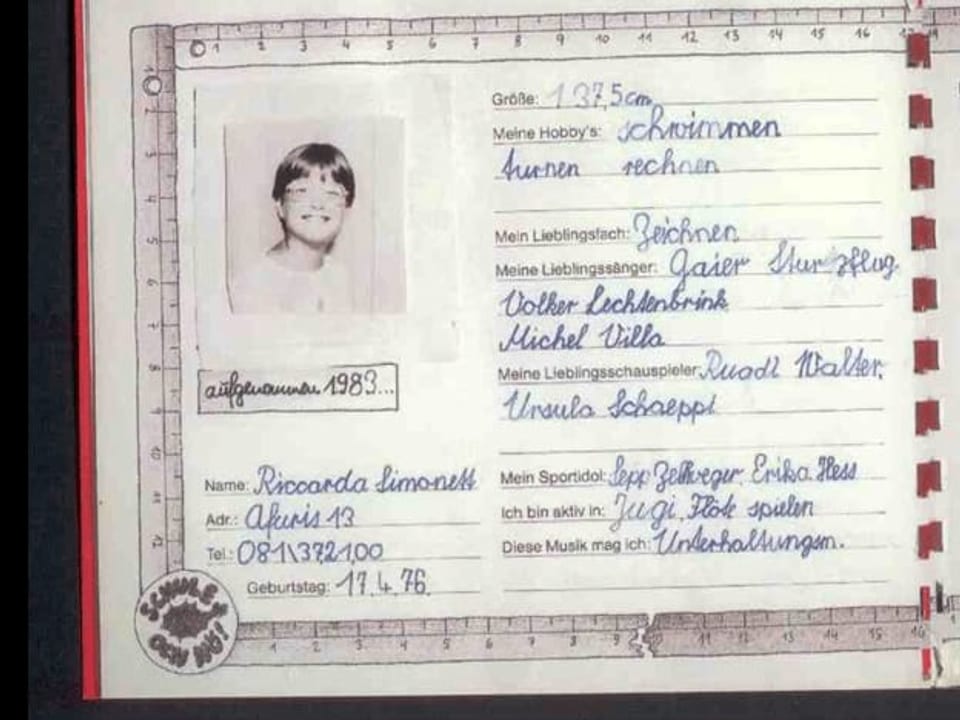 1 2 3 4 5 6 7 8 9 10 11 12 13 14 15 16
Größe: 137,5cm
Meine Hobby's: schwimmen
turnen rechnen
Mein Lieblingsfach: Zeichnen
Meine Lieblingssänger: Gaier Sturzflug
Volker Lechtenbrink
Michel Villa
Meine Lieblingsschauspieler: Ruedi Walter,
Ursula Schaeppi
Mein Sportidol: Sepp Zellweger, Erika Hess
Ich bin aktiv in: Jugi, Flöte spielen
Diese Musik mag ich: Unterhaltungsm.
aufgenommen 1983...
Name: Riccarda Simonett
Adr.: Afuris 13
Tel.: 081\372100
Geburtstag: 17.4.76
SCHULE
OCH NÖ!
1 2 3 4 5 6 7 8 9 11 12 13 14 15 16